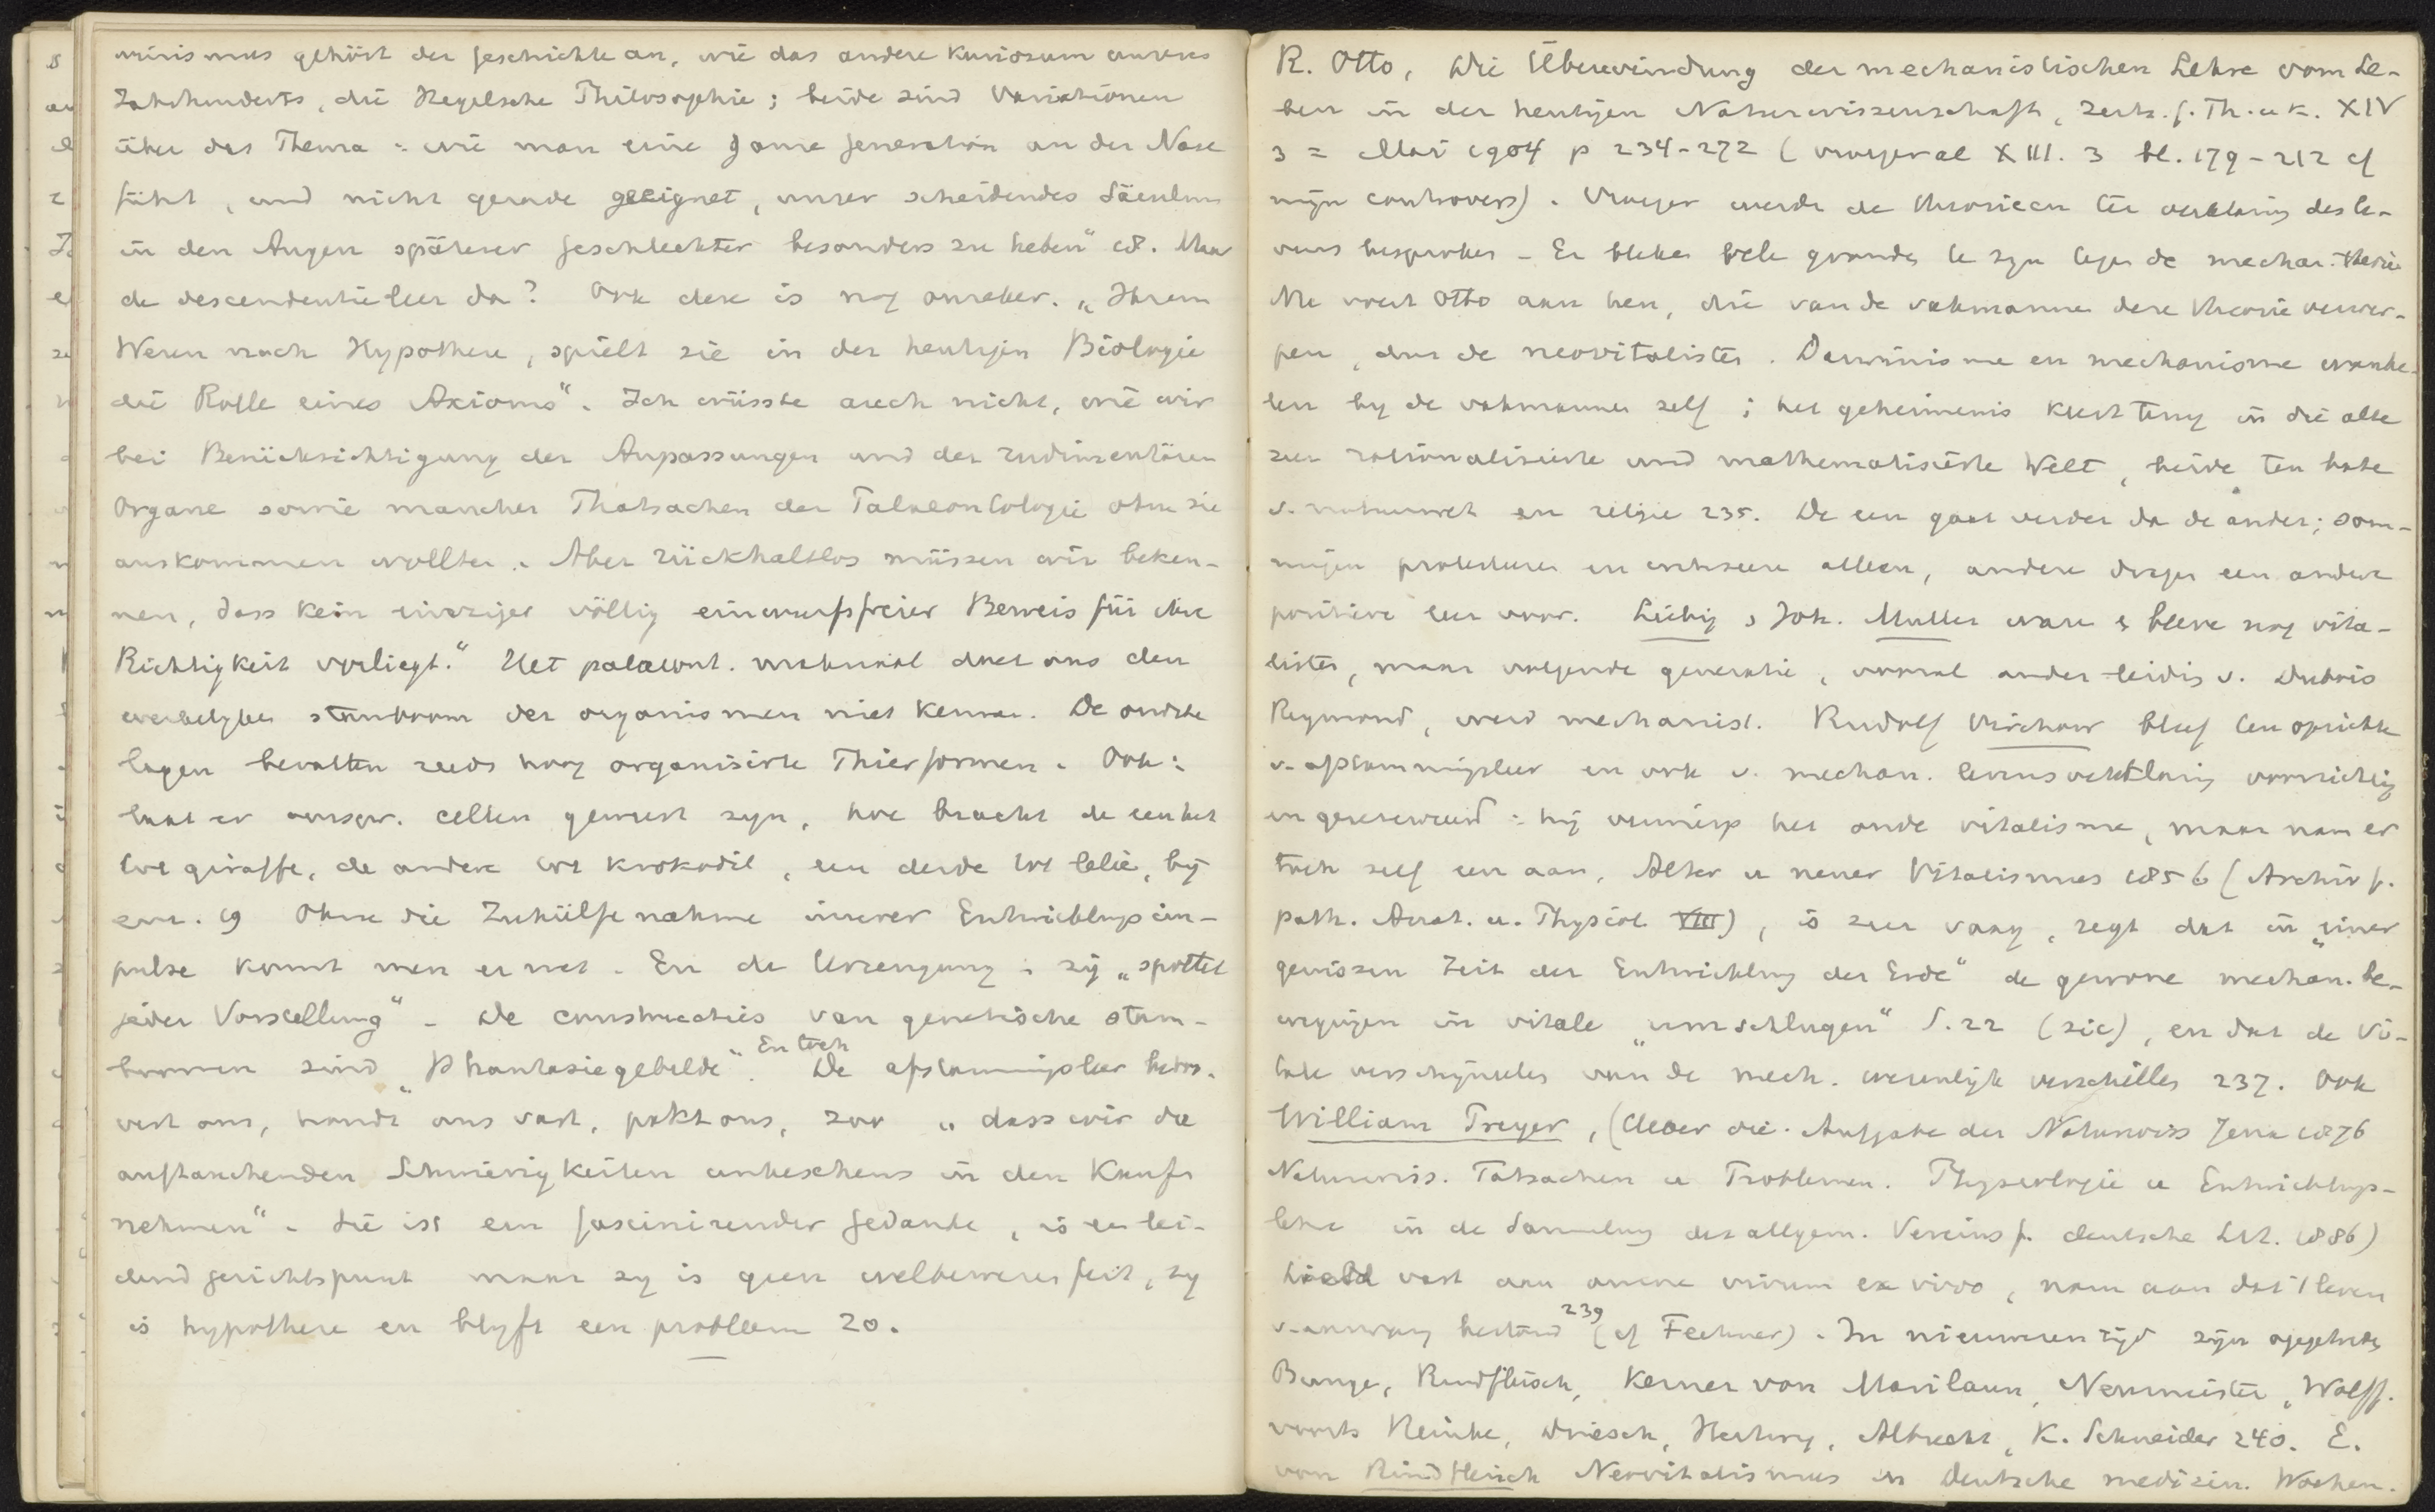 winismus gehört der Geschichte an, wie das andere Kuriosum unseres
Jahrhunderts, die Hegelsche Philosophie; beide sind Variationen
über das Thema: wie man eine ganze Generation an der Nase
führt, und nicht gerade geeignet, unser scheidendes Säculum
in den Augen späterer Geschlechter besonders zu heben" 18. Maar
de descendentieleer da? Ook deze is nog onzeker. „Ihrem
Wesen nach Hypothese, spielt sie in der heutigen Biologie
die Rolle eines Axioms". Ich wüsste auch nicht, wie wir
bei Berücksichtigung der Anpassungen und der rudimentären
Organe sowie mancher Thatsachen der Palaeontologie ohne sie
auskommen wollten. Aber rückhaltlos müssen wir beken-
nen, dass kein einziger völlig einwurfsfreier Beweis für ihre
Richtigkeit vorliegt." Het palaeont. materiaal doet ons den
werkelyken stamboom der organismen niet kennen. De oudste
lagen bevatten reeds hoog organisirte Thierformen. Ook:
laat er oorspr. cellen geweest zyn, hoe bracht de een het
tot giraffe, de andere tot krokodil, een derde tot lelie, bij
env. 19 Ohne die Zuhülfenahme innerer Entwicklungsim-
pulse komt men er niet. En de Urzeugung: zij „spottet
jeder Vorstellung". De constructies van genetische stam-
boomen sind „Phantasiegebilde". En toch De afstammingsleer betoo-
vert ons, houdt ons vast, pakt ons, zoo „dass wir die
auftauchenden Schwierigkeiten unbesehens in den Kauf
nehmen". Sie ist ein fascinirender Gedanke, is en lei-
dend gezichtspunt maar zy is geen welbewezen feit, zy
is hypothese en blyft een probleem 20.
R. Otto, Die Überwindung der mechanistischen Lehre vom Le-
ben in der heutigen Naturwissenschaft, Zeits. f. Th. u K. XIV
3 = Mai 1904 p 234-272 (vroeger al XIII. 3 bl. 179-212 cf
mijn controvers). Vroeger werden de theorieen ter verklaring des le-
vens besproken. Er bleken vele gronden te zyn tegen de mechan. theorie
Nu voert Otto aan hen, die van de vakmannen deze theorie verwer-
pen, dus de neovitalisten. Darwinisme en mechanisme wanke-
len by de vakmannen zelf; het geheimenis keert terug in die allzu
sehr rationalisierte und mathematisierte Welt, beide ten bate
v. natuurwet. en religie 235. De een gaat verder da de ander; som-
migen protesteren en critiseeren alleen, andere dragen een andere
positieve leer voor. Liebig, Joh. Muller ware & bleve nog vita-
listen, maar volgende generatie, vooral onder leiding v. Dubois
Reymond, werd mechanist. Rudolf Virchow bleef ten opzichte
v. afstammingsleer en ook v. mechan. levensverklaring voorzichtig
en gereserveerd: hij verwierp het oude vitalisme, maar nam er
toch zelf een aan, Alter u neuer Vitalismus 1856 (Archiv f.
path. Anat. u. Physiol VIII), is zeer vaag, zegt dat in „einer
gewissen Zeit der Entwicklung der Erde" de gewone mechan. be-
wegingen in vitale „umschlugen" S. 22 (sic), en dat de vi-
tale verschijnselen van de mech. wezenlijk verschillen 237. Ook
William Preyer, (Ueber die Aufgabe der Naturwiss Jena 1876
Naturwiss. Tatsachen u Problemen. Physiologie u Entwicklungs-
lehre in de Sammlung des allgem. Vereins f. deutsche Lit. 1886)
hield vast aan omne vivum ex vivo, nam aan dat 't leven
v. aanvang bestond 239 (cf Fechner). In nieuweren tijd zijn opgetreden
Bunge, Rindfleisch, Kerner von Marilaun, Neumeister, Wolff.
voorts Reinke, Driesch, Hertwig, Albrecht, K. Schneider 240. E.
von Rindfleisch Neovitalismus in Deutsche medizin. Wochen.